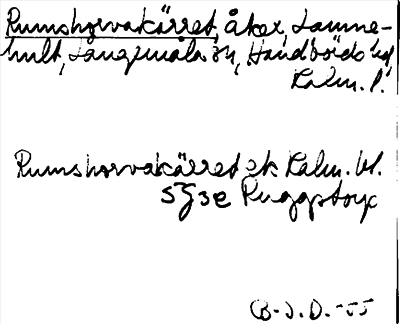 Rumshorvakärret, åker, Lamme-
hult, Långemåla sn, Handbörds hd
Kalm. l.
Rumshorvakärret ek Kalm. bl.
5G3e Ruggstorp
(B.J.D.-55